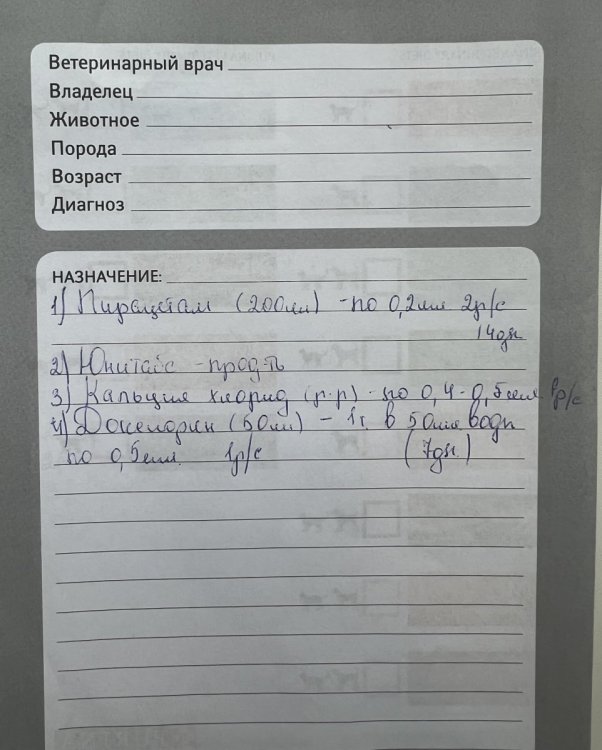 Ветеринарный врач
Владелец
Животное
Порода
Возраст
Диагноз
НАЗНАЧЕНИЕ:
1) Пирацетам (200мл) - по 0,2мл 2р/с
14дн
2) Юнитабс - прод-ть
3) Кальция хлорид (р-р) - по 0,4-0,5мл 1р/с
4) (50мл) - 1г. в 50мл воды
по 0,5мл. 1р/с (7дн.)